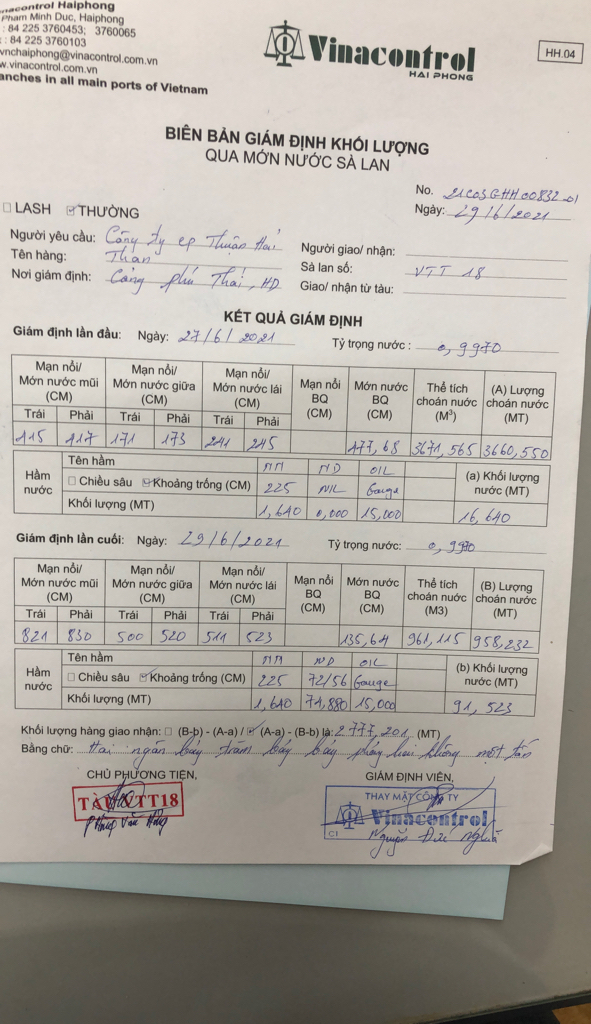 nacontrol Haiphong
Pham Minh Duc, Haiphong
: 84 225 3760453; 3760065
: 84 225 3760103
vnchaiphong@vinacontrol.com.vn
w.vinacontrol.com.vn
anches in all main ports of Vietnam
Vinacontrol
HAI PHONG
HH.04
BIÊN BẢN GIÁM ĐỊNH KHỐI LƯỢNG
QUA MỚN NƯỚC SÀ LAN
No. 21C03GHH00832-01
LASH THƯỜNG Ngày: 29/6/2021
Người yêu cầu: Công ty cp Thuận Hải Người giao/ nhận:
Tên hàng: Than Sà lan số: VTT 18
Nơi giám định: Cảng phú Thái, HD Giao/ nhận từ tàu:
KẾT QUẢ GIÁM ĐỊNH
Giám định lần đầu: Ngày: 27/6/2021 Tỷ trọng nước : 0,9970
Mạn nổi/ Mớn nước mũi (CM) Mạn nổi/ Mớn nước giữa (CM) Mạn nổi/ Mớn nước lái (CM) Mạn nổi BQ (CM) Mớn nước BQ (CM) Thể tích choán nước (M³) (A) Lượng choán nước (MT)
Trái Phải Trái Phải Trái Phải
415 417 171 173 241 245 477,68 3671,565 3660,550
Hầm nước Tên hầm MM MD OIL (a) Khối lượng nước (MT)
Chiều sâu Khoảng trống (CM) 225 NIL Gauge
Khối lượng (MT) 1,640 0,000 15,000 16,640
Giám định lần cuối: Ngày: 29/6/2021 Tỷ trọng nước: 0,9970
Mạn nổi/ Mớn nước mũi (CM) Mạn nổi/ Mớn nước giữa (CM) Mạn nổi/ Mớn nước lái (CM) Mạn nổi BQ (CM) Mớn nước BQ (CM) Thể tích choán nước (M3) (B) Lượng choán nước (MT)
Trái Phải Trái Phải Trái Phải
821 830 500 520 511 523 135,64 961,115 958,232
Hầm nước Tên hầm MM MD OIL (b) Khối lượng nước (MT)
Chiều sâu Khoảng trống (CM) 225 72/56 Gauge
Khối lượng (MT) 1,640 74,880 15,000 91,523
Khối lượng hàng giao nhận: (B-b) - (A-a) / (A-a) - (B-b) là: 2777,201 (MT)
Bằng chữ: Hai ngàn bảy trăm bảy bảy phẩy hai không một tấn
CHỦ PHƯƠNG TIỆN, GIÁM ĐỊNH VIÊN,
TÀU VTT18
THAY MẶT CÔNG TY
Vinacontrol
C1
Nguyễn Đức Nghĩa